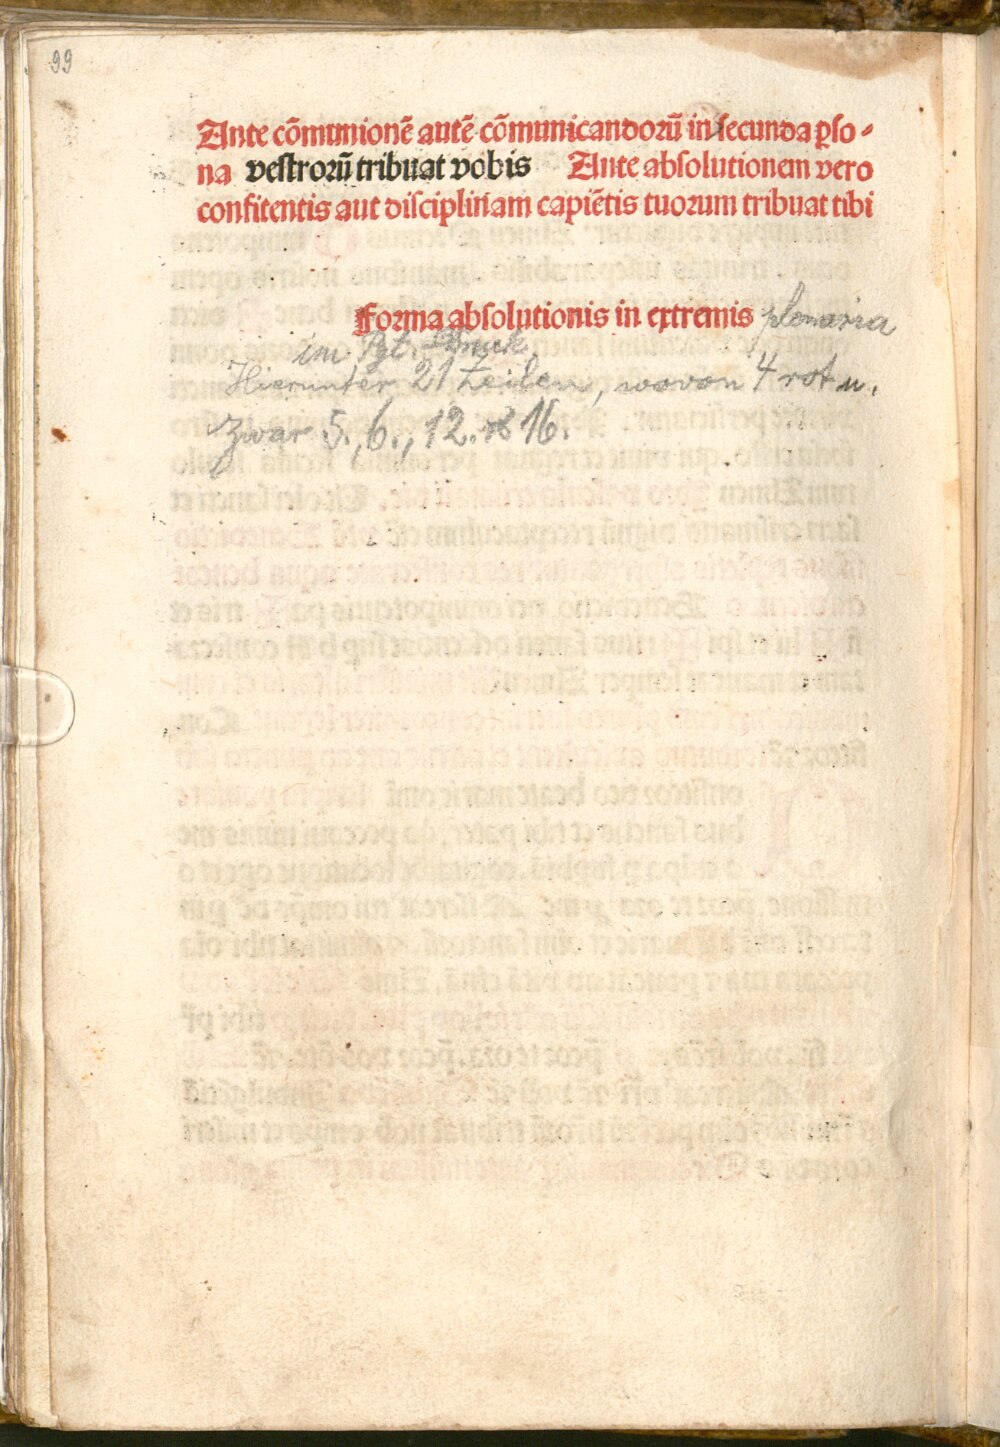 99
Ante cõmunionē autē cõmunicandoꝛū in secunda ꝑso-
na vestroꝛū tribuat vobis Ante absolutionem vero
confitentis aut disciplinam capiētis tuorum tribuat tibi
Forma absolutionis in extremis plenaria
im Pgt-Druck
Hierunter 21 Zeilen, wovon 4 rot u.
zwar 5., 6., 12. 16.